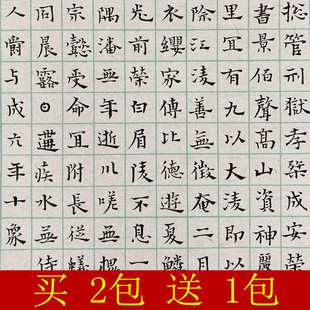 揔管刑獄孝栞成安榮
書景伯聲高山資神麗
里冝有九以大淩即以
除江淩善無徵奄二月
衣纓家傳比德遊夏鱗
光前榮曰眉陵不息一
隅潘無年逝川嗟無偶
宗懿受命冝附長從蟻
同晨露遘疾水無侍
人爵与成六年十眾
买 2包 送 1包